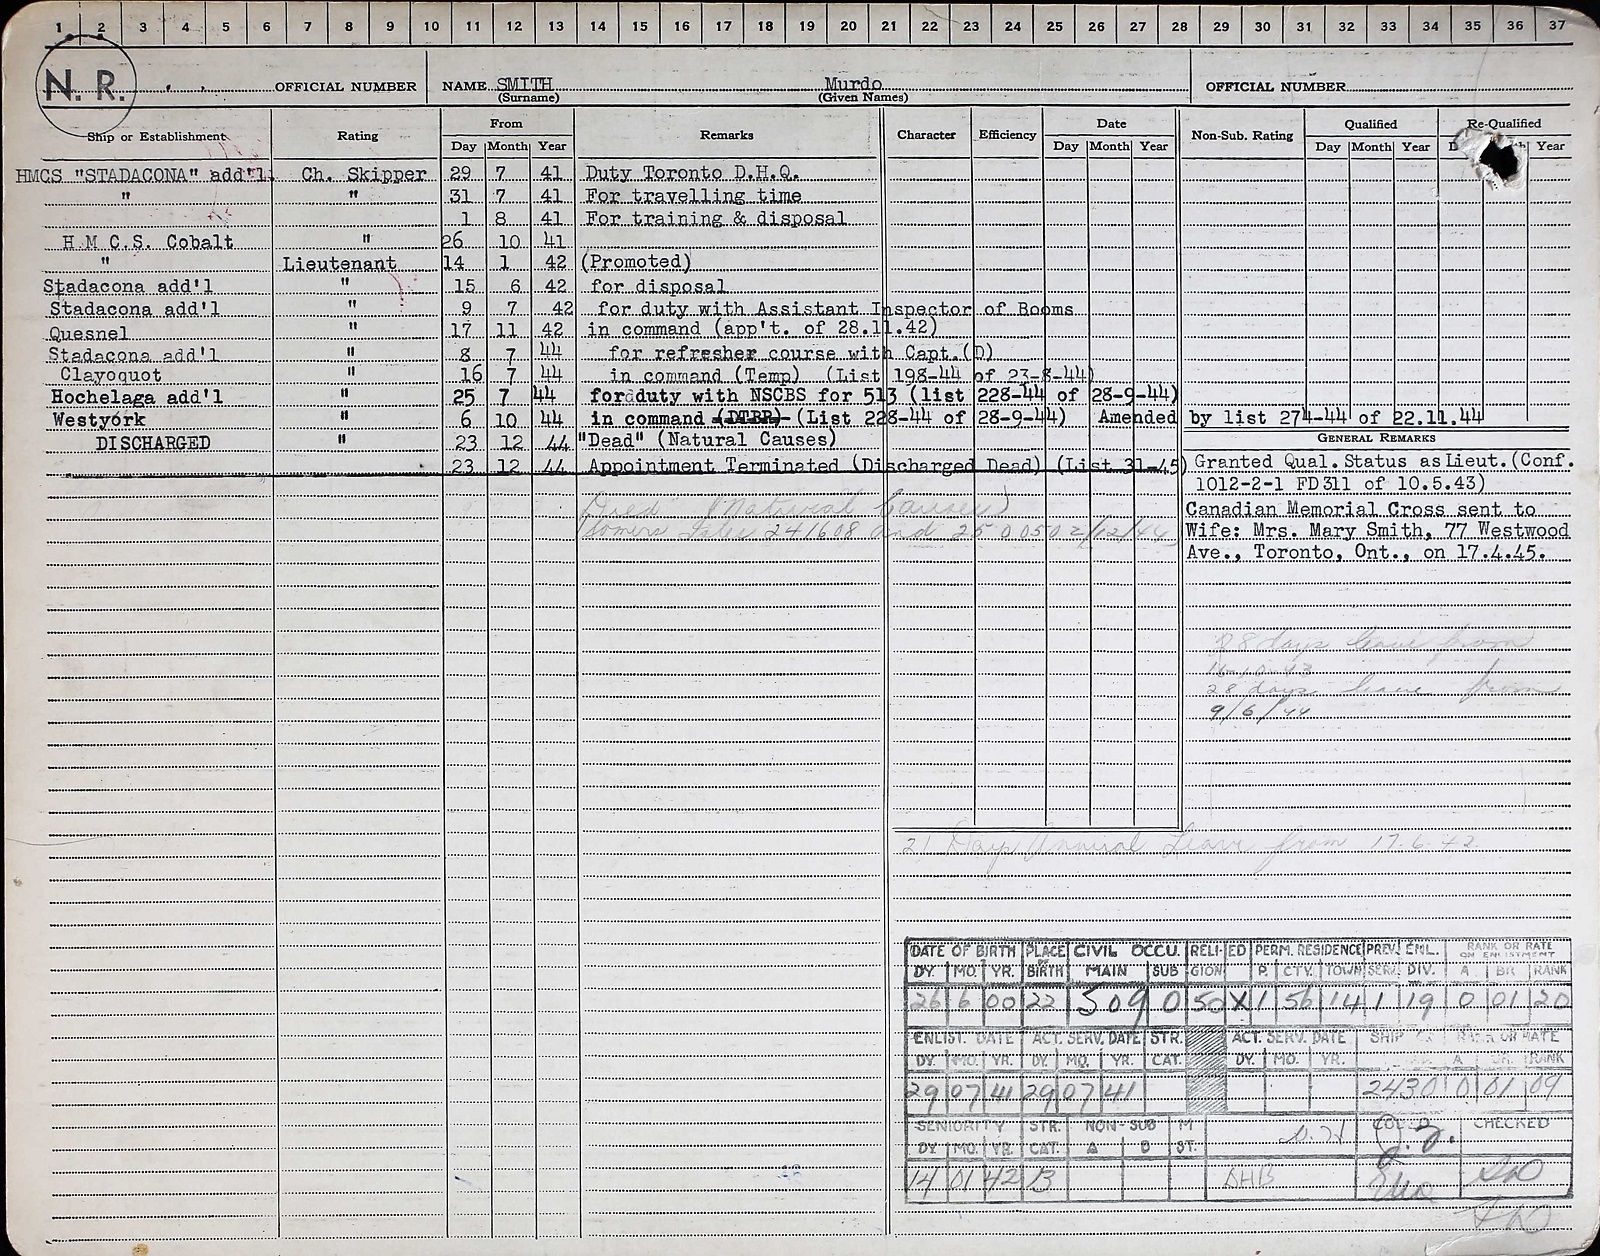 1 2 3 4 5 6 7 8 9 10 11 12 13 14 15 16 17 18 19 20 21 22 23 24 25 26 27 28 29 30 31 32 33 34 35 36 37
N. R. OFFICIAL NUMBER NAME SMITH Murdo OFFICIAL NUMBER
(Surname) (Given Names)
Ship or Establishment Rating From Remarks Character Efficiency Date Non-Sub. Rating Qualified Re-Qualified
Day Month Year Day Month Year Day Month Year Year
HMCS "STADACONA" add'l. Ch. Skipper 29 7 41 Duty Toronto D.H.Q.
" " 31 7 41 For travelling time
1 8 41 For training & disposal
H M C.S. Cobalt " 26 10 41
" Lieutenant 14 1 42 (Promoted)
Stadacona add'l " 15 6 42 for disposal
Stadacona add'l " 9 7 42 for duty with Assistant Inspector of Booms
Quesnel " 17 11 42 in command (app't. of 28.11.42)
Stadacona add'l " 8 7 44 for refresher course with Capt.(D)
Clayoquot " 16 7 44 in command (Temp) (List 198-44 of 23-8-44)
Hochelaga add'l " 25 7 44 for duty with NSCBS for 513 (list 228-44 of 28-9-44)
Westyork " 6 10 44 in command (DTBR) (List 228-44 of 28-9-44) Amended by list 274-44 of 22.11.44
DISCHARGED " 23 12 44 "Dead" (Natural Causes)
GENERAL REMARKS
23 12 44 Appointment Terminated (Discharged Dead) (List 31-45)
Granted Qual. Status as Lieut.(Conf.
1012-2-1 FD 311 of 10.5.43)
Canadian Memorial Cross sent to
Wife: Mrs. Mary Smith, 77 Westwood
Ave., Toronto, Ont., on 17.4.45.
Died (Natural Causes)
Somers Isles 241608 and 250050 2/12/44)
28 days leave from
16-10-43
28 days leave from
9/6/44
21 Days Annual Leave from 17.6.42
DATE OF BIRTH PLACE OF BIRTH CIVIL OCCU. RELIGION ED PERM. RESIDENCE PREV. SERV. ENL. DIV. RANK OR RATE ON ENLISTMENT
DY. MO. YR. MAIN SUB P. CTY. TOWN A BR RANK
26 6 00 22 509 0 50 X 1 56 14 1 19 0 01 20
ENLIST. DATE ACT. SERV. DATE STR. ACT. SERV. DATE SHIP RANK OR RATE
DY. MO. YR. DY. MO. YR. CAT. DY. MO. YR. A BR. RANK
29 07 41 29 07 41 2430 0 01 09
SENIORITY STR. NON-SUB M CODED CHECKED
DY. MO. YR. CAT. A B ST.
14 01 42 B